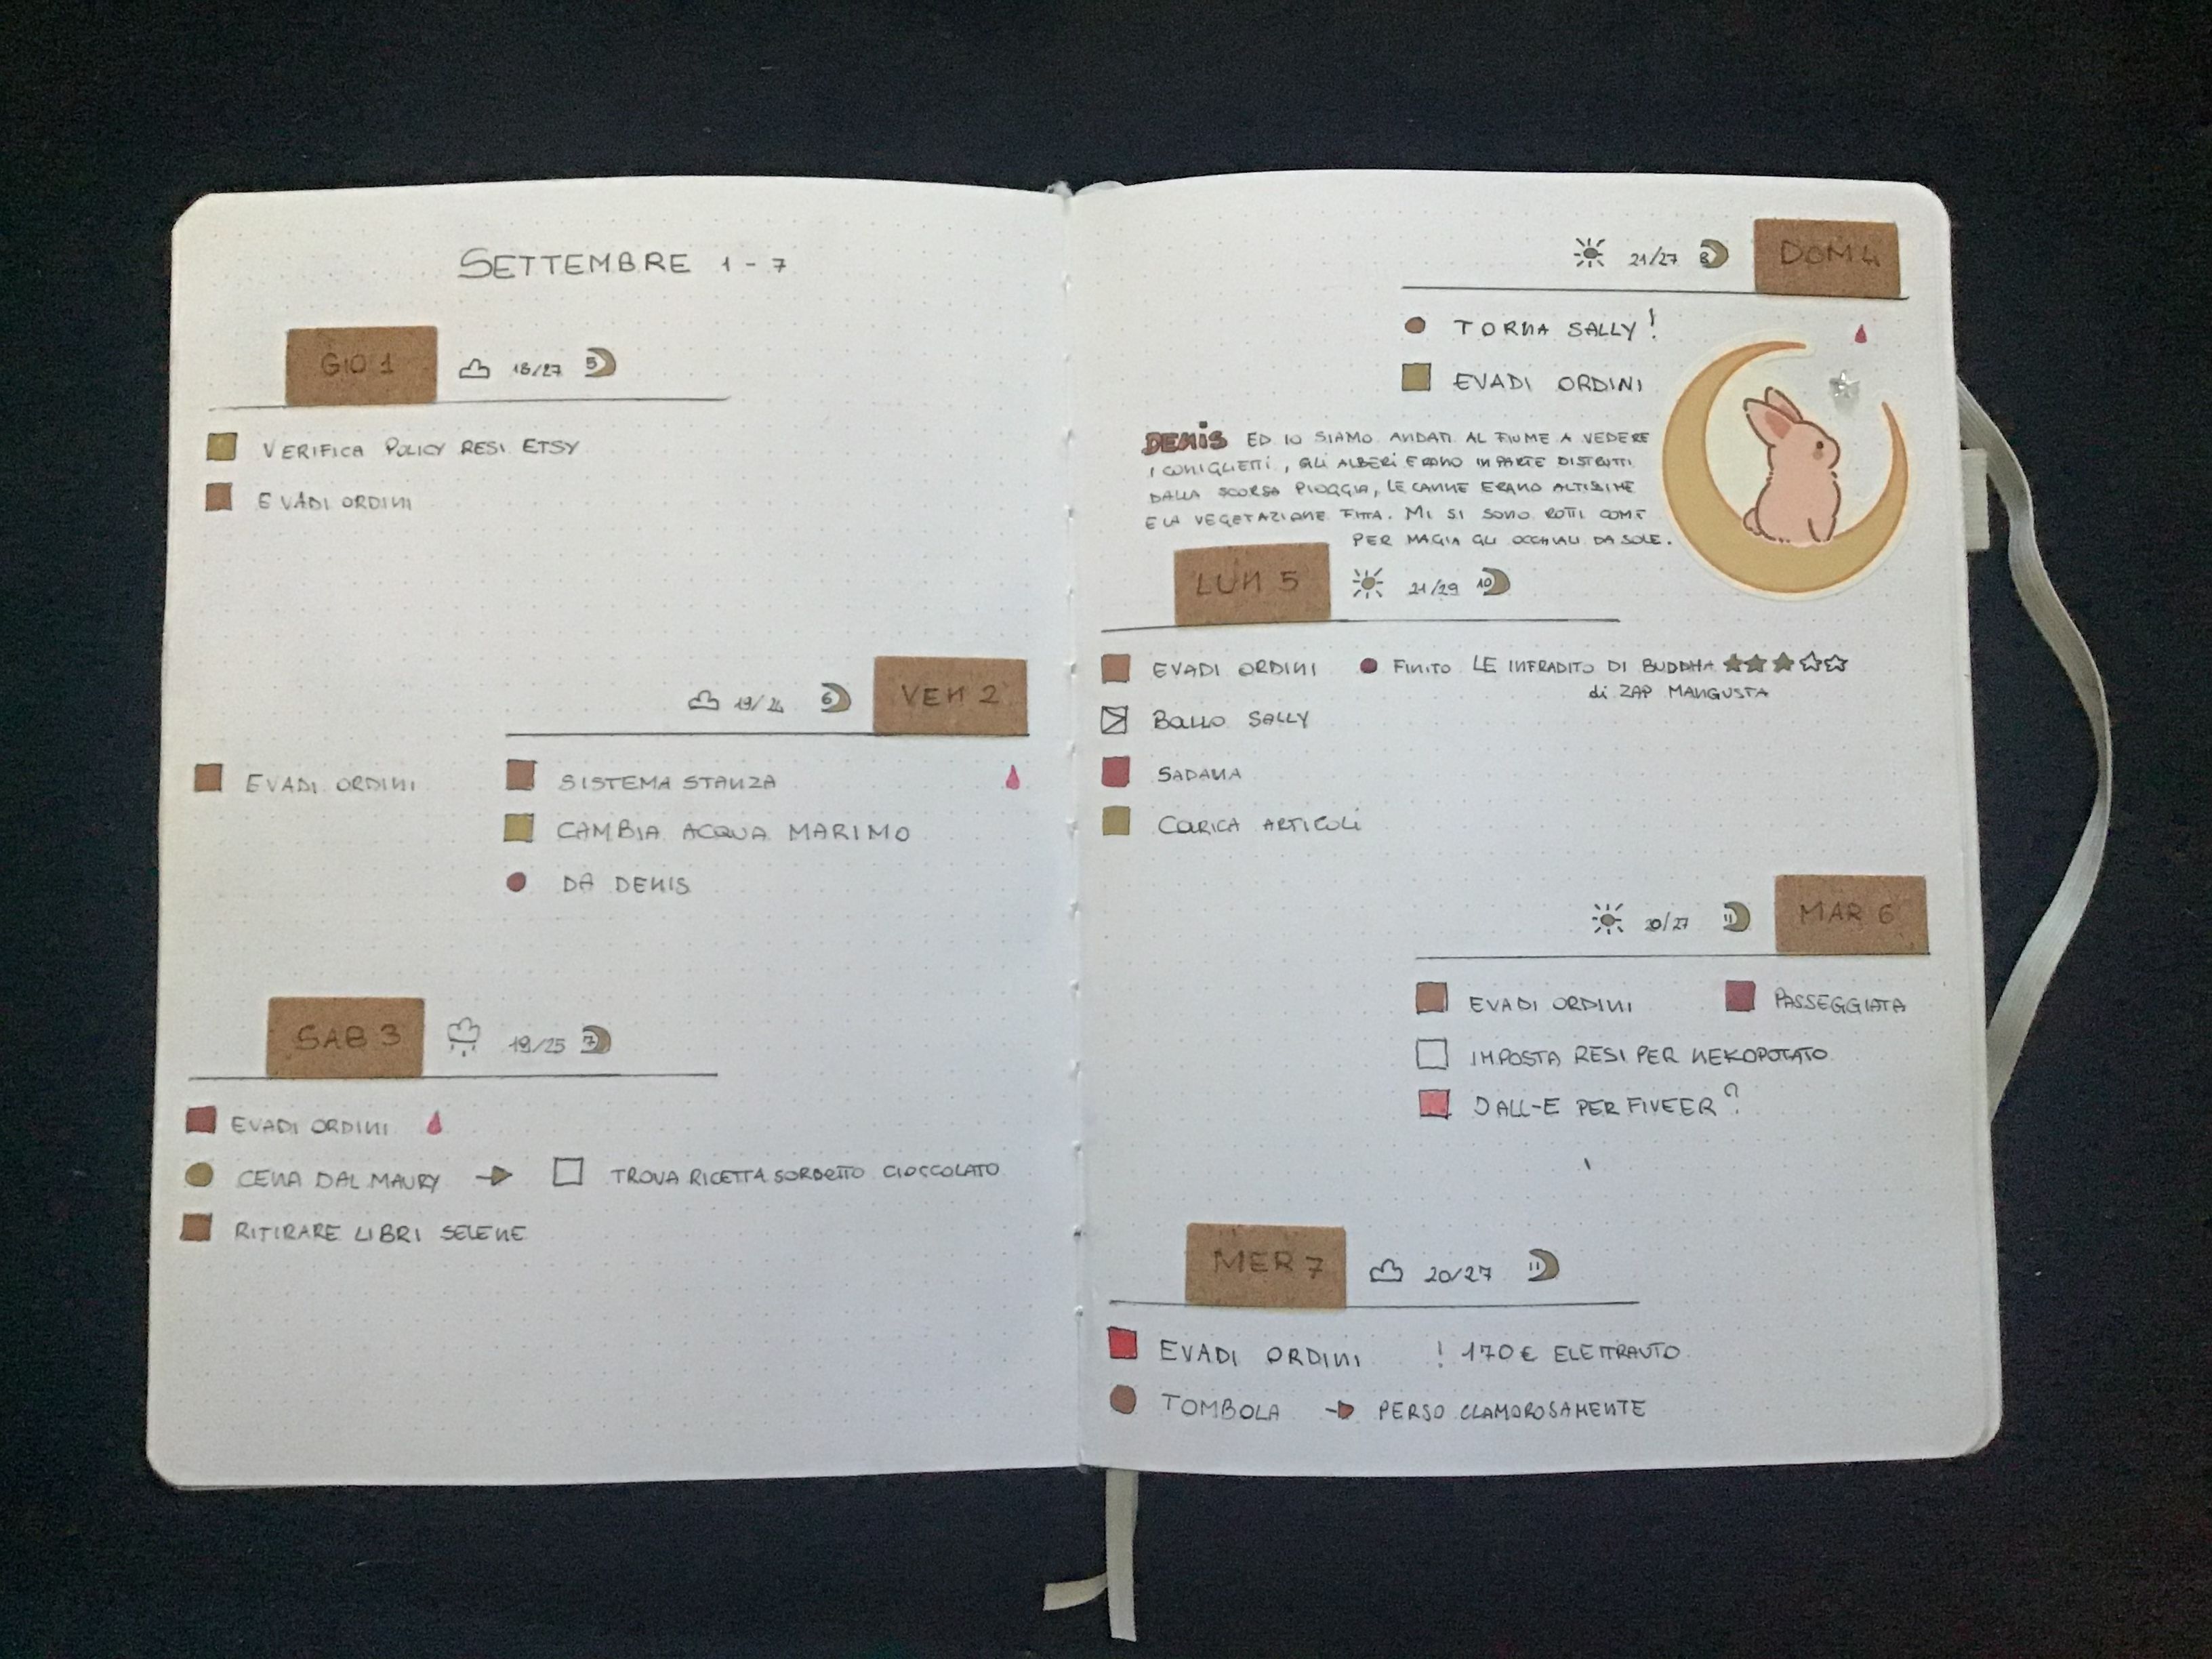 SETTEMBRE 1 - 7
GIO 1 18/27 5
VERIFICA POLICY RESI ETSY
EVADI ORDINI
19/24 6 VEN 2
EVADI ORDINI SISTEMA STANZA
CAMBIA ACQUA MARIMO
DA DENIS
SAB 3 19/25 7
EVADI ORDINI
CENA DAL MAURY → TROVA RICETTA SORBETTO CIOCCOLATO
RITIRARE LIBRI SELENE
21/27 8 DOM 4
TORNA SALLY!
EVADI ORDINI
DENIS ED IO SIAMO ANDATI AL FIUME A VEDERE
I CONIGLIETTI, GLI ALBERI ERANO IN PARTE DISTRUTTI
DALLA SCORSA PIOGGIA, LE CANNE ERANO ALTISSIME
E LA VEGETAZIONE FITTA. MI SI SONO ROTTI COME
PER MAGIA GLI OCCHIALI DA SOLE.
LUN 5 21/29 10
EVADI ORDINI FINITO LE INFRADITO DI BUDDHA ★★★☆☆
di ZAP MANGUSTA
BOLLO SALLY
SADANA
CARICA ARTICOLI
20/27 11 MAR 6
EVADI ORDINI PASSEGGIATA
IMPOSTA RESI PER NEKOPOTATO
DALL-E PER FIVEER?
MER 7 20/27 11
EVADI ORDINI ! 170€ ELETTRAUTO
TOMBOLA → PERSO CLAMOROSAMENTE